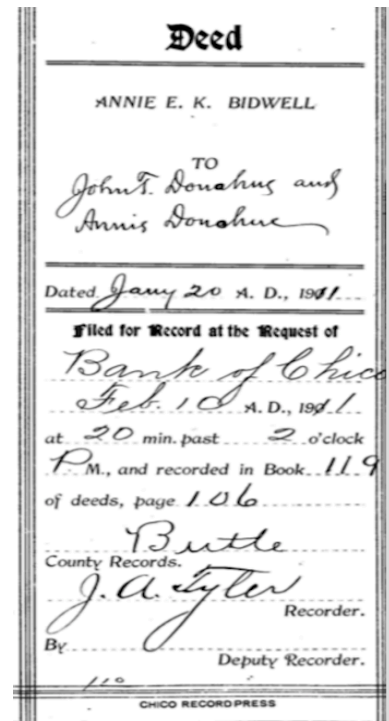 Deed
ANNIE E. K. BIDWELL
TO
John T. Donahue and
Annie Donahue
Dated Jany 20 A. D., 1911
Filed for Record at the Request of
Bank of Chico
Feb. 10 A. D., 1911
at 20 min. past 2 o'clock
P M., and recorded in Book 119
of deeds, page 106
Butte
County Records.
J. A. Tyler
Recorder.
By
Deputy Recorder.
110
CHICO RECORD PRESS